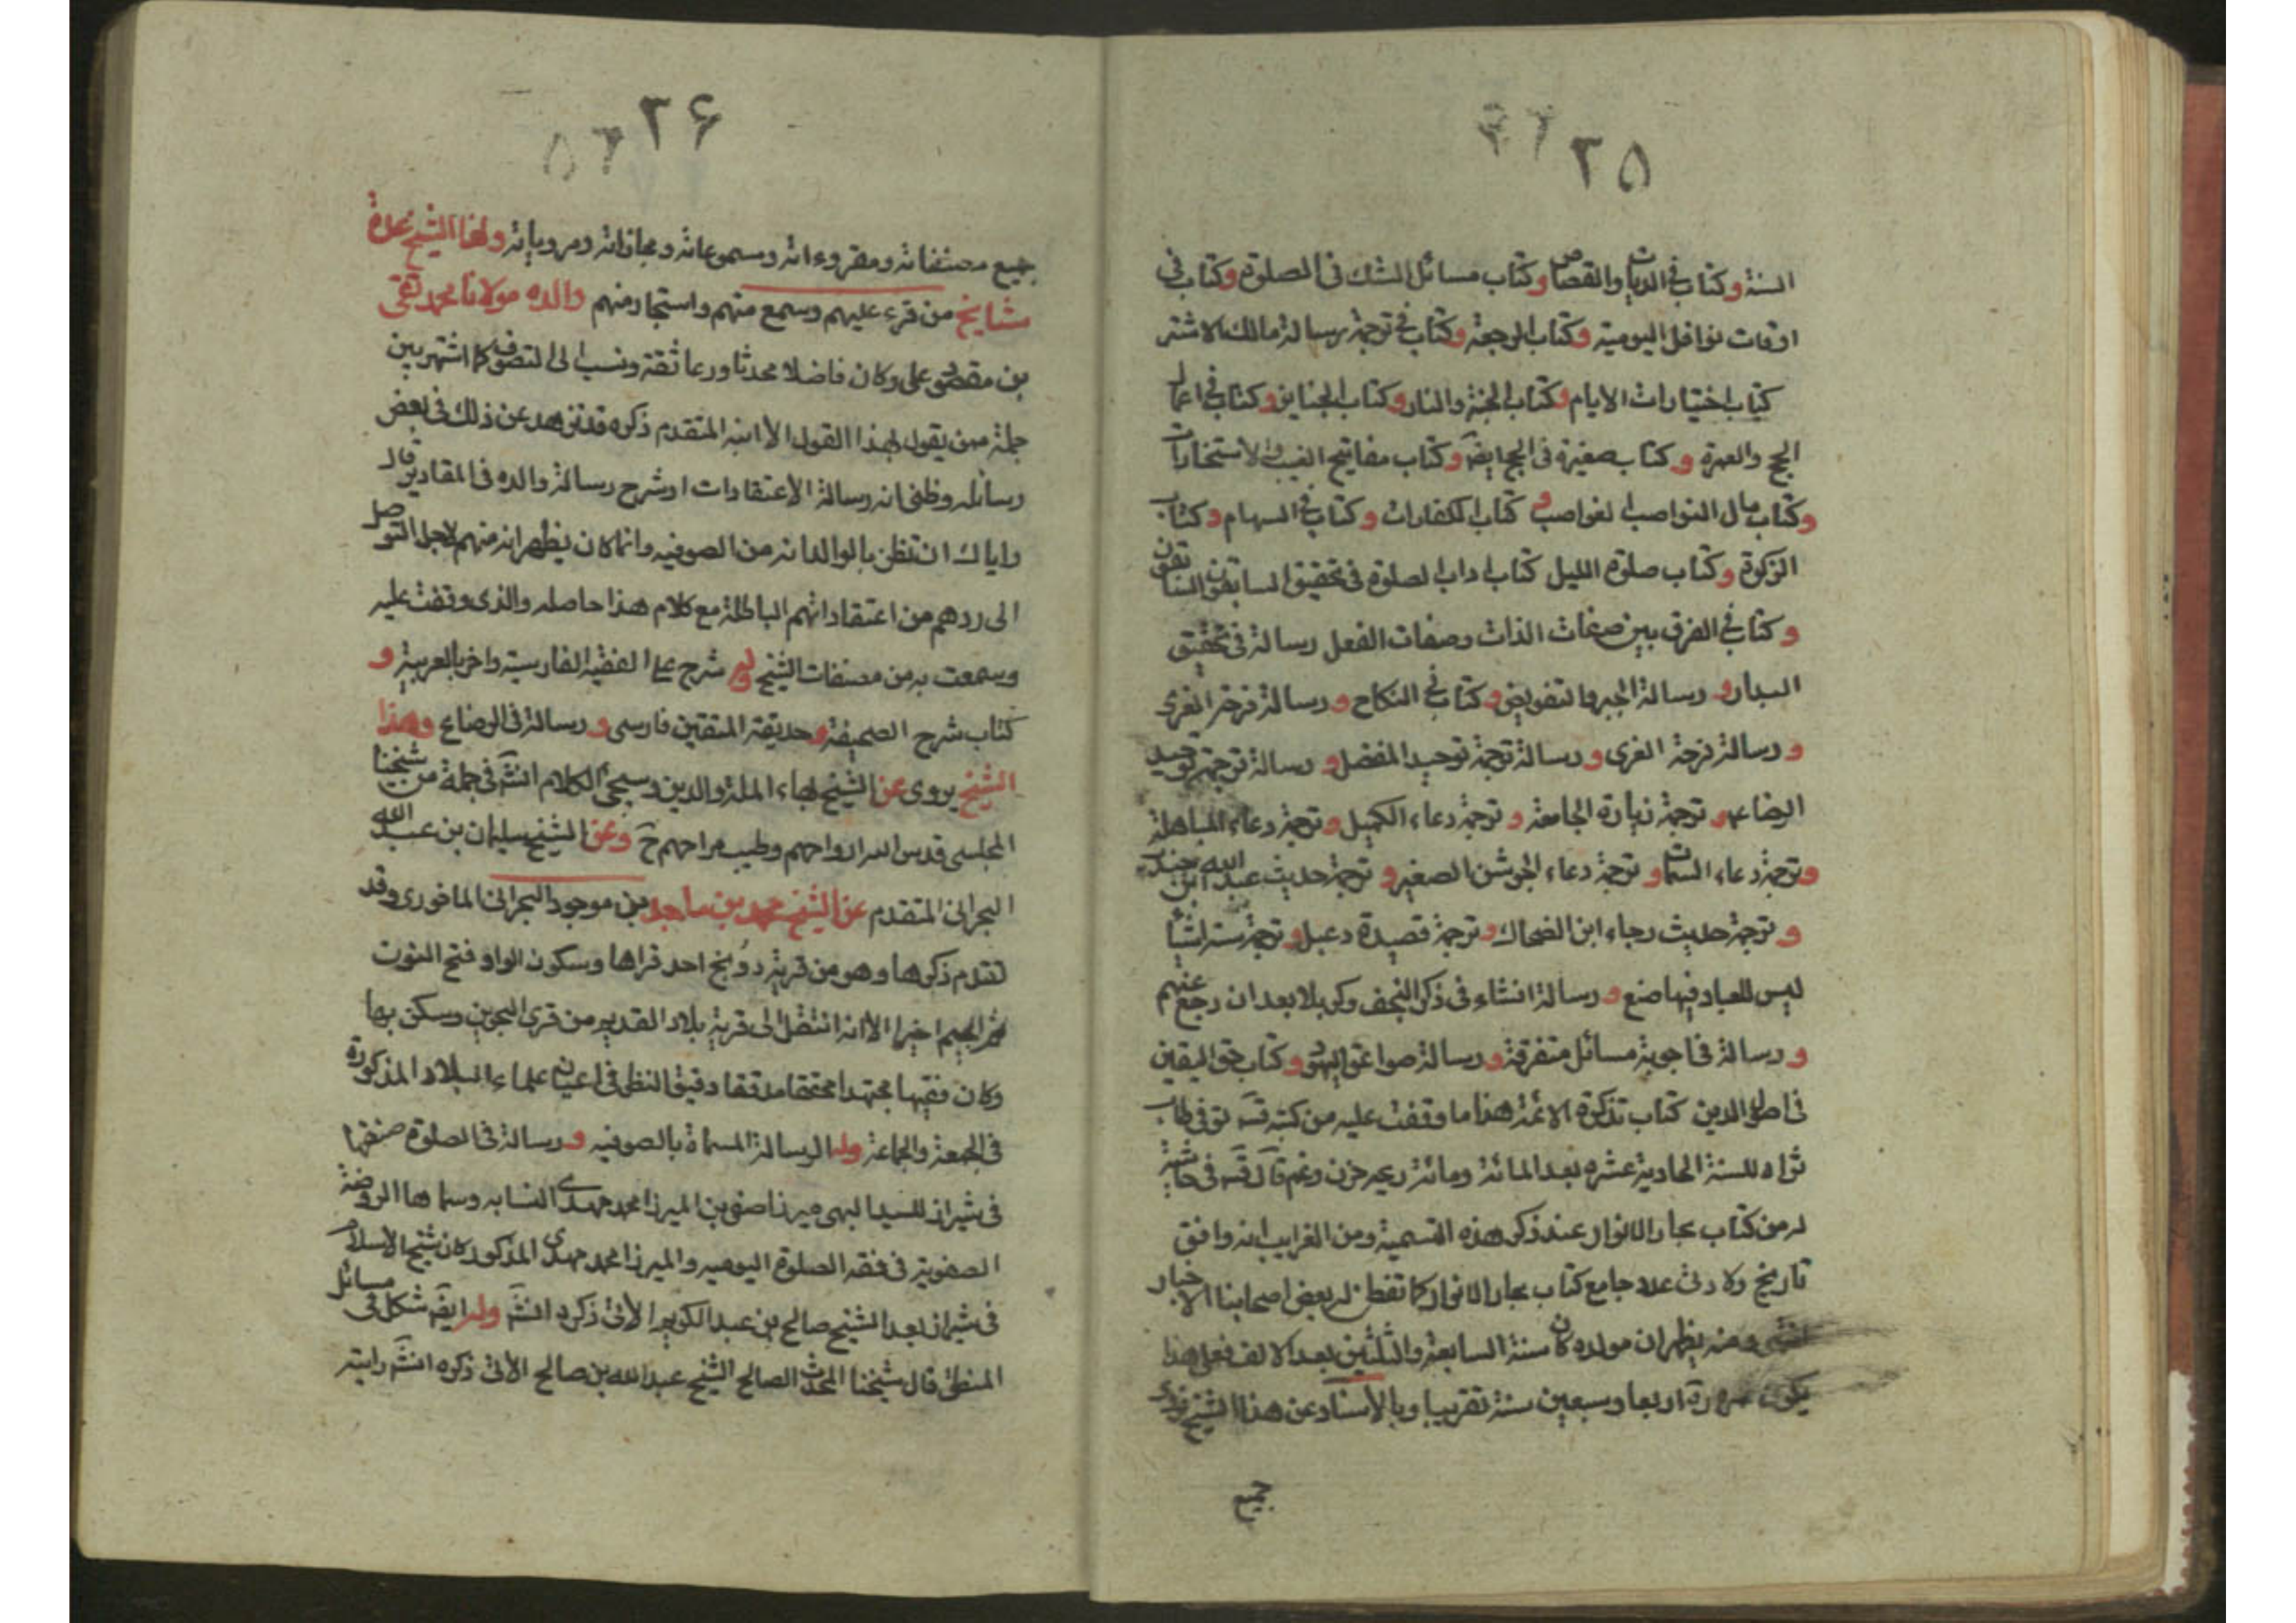 ٢٥
السنة وكتاب في الديات والقصاص وكتاب مسائل الشك في الصلوة وكتاب في
اوقات نوافل اليومية وكتاب الرجعة وكتاب في ترجمة رسالة مالك الاشتر
كتاب اختيارات الايام وكتاب الجنة والنار وكتاب الجنايز وكتاب في اعمال
الحج والعمرة وكتاب صغيرة في الحج ايضَ وكتاب مفاتيح الغيب في الاستخارات
وكتاب مال النواصب وكتاب الكفارات وكتاب في السهام وكتاب
الزكوة وكتاب صلوة الليل كتاب اداب الصلوة في تحقيق السابقون السابقون
وكتاب في الفرق بين صفات الذات وصفات الفعل رسالة في تحقيق
البداء ورسالة الجبر والتفويض وكتاب في النكاح ورسالة فرحة الغرى
ورسالة فرحة الغرى ورسالة ترجمة توحيد المفضل ورسالة ترجمة توحيد
الرضا عم وترجمة زيارة الجامعة وترجمة دعاء الكميل وترجمة دعاء المباهلة
وترجمة دعاء السمات وترجمة دعاء الجوشن الصغير وترجمة حديث عبد الله ابن جندب
وترجمة حديث رجاء ابن الضحاك وترجمة قصيدة دعبل وترجمة ستة اشياء
ليس للعباد فيها صنع ورسالة انشاء في ذكر النجف وكربلا بعد ان رجع عنهم
ورسالة في اجوبة مسائل متفرقة ورسالة صواعق اليهود وكتاب حق اليقين
في اصول الدين كتاب تذكرة الائمة هذا ما وقفت عليه من كتبه قسَ توفي طاب
ثراه للسنة الحادية عشره بعد المائة ومائة حزن وغم قال قسَ في حاشية
له من كتاب بحار الانوار عند ذكر هذه التسمية ومن الغرايب انه وافق
تاريخ ولادتي عدد جامع كتاب بحار الانوار كما تفطن له بعض اصحابنا الاخيار
انتهى ومنه يظهر ان مولده كان سنة السابعة والثلثين بعد الالف فعلى هذا
يكون عمره اربعا وسبعين سنة تقريبا وبالاسناد عن هذا الشيخ نروي
جميع
٢۶
جميع مصنفاته ومقروءاته ومسموعاته ومجازاته ومروياته ولهذا الشيخ عدة
مشايخ من قرء عليهم وسمع منهم واستجار منهم والده مولانا محمد تقى
بن مقصود على وكان فاضلا محدثا ورعا ثقة ونسب الى التصوف كما اشتهر بين
جملة ممن يقول بهذا القول الا ابنه المتقدم ذكره قد نزهه عن ذلك في بعض
رسائله وظنى انه رسالة الاعتقادات او شرح رسالة والده في المقادير قال
واياك ان تظن بالوالد انه من الصوفيه وانما كان يظهر انه منهم لاجل التوصل
الى ردهم من اعتقاداتهم الباطلة مع كلام هذا حاصله والذي وقفت عليه
وسمعت به من مصنفات الشيخ شرح على الفقيه الفارسية واخر بالعربية و
كتاب شرح الصحيفة وحديقة المتقين فارسى ورسالة في الرضاع وهذا
الشيخ يروى عن الشيخ بهاء الملة والدين وسيجئ الكلام انشَ في جملة من شيخنا
المجلسى قدس الله ارواحهم وطيب مراحهم حَ وعن الشيخ سليمان بن عبد الله
البحرانى المتقدم عن الشيخ محمد بن ماجد بن موجود البحرانى الماخورى وقد
تقدم ذكرها وهو من قرية دونج احد قراها وسكون الواو فتح النون
ثم الجيم اخيرا الا انه انتقل الى قرية بلاد القديم من قرى البحرين وسكن بها
وكان فقيها مجتهدا محققا مدققا دقيق النظر في اعيان علماء البلاد المذكورة
في الجمعة والجماعة وله الرسالة المسماة بالصوفيه ورسالة في الصلوة صنفها
في شيراز للسيد البهى ميرزا صفى بن الميرزا محمد مهدى النسابه وسماها الروضة
الصفوية في فقه الصلوة اليومية والميرزا محمد مهدى المذكور كان شيخ الاسلام
في شيراز بعد الشيخ صالح بن عبد الكريم الآتى ذكره انشَ وله ايضَ شكل في مسائل
المنطق قال شيخنا المحدث الصالح الشيخ عبد الله بن صالح الآتى ذكره انشَ رايته